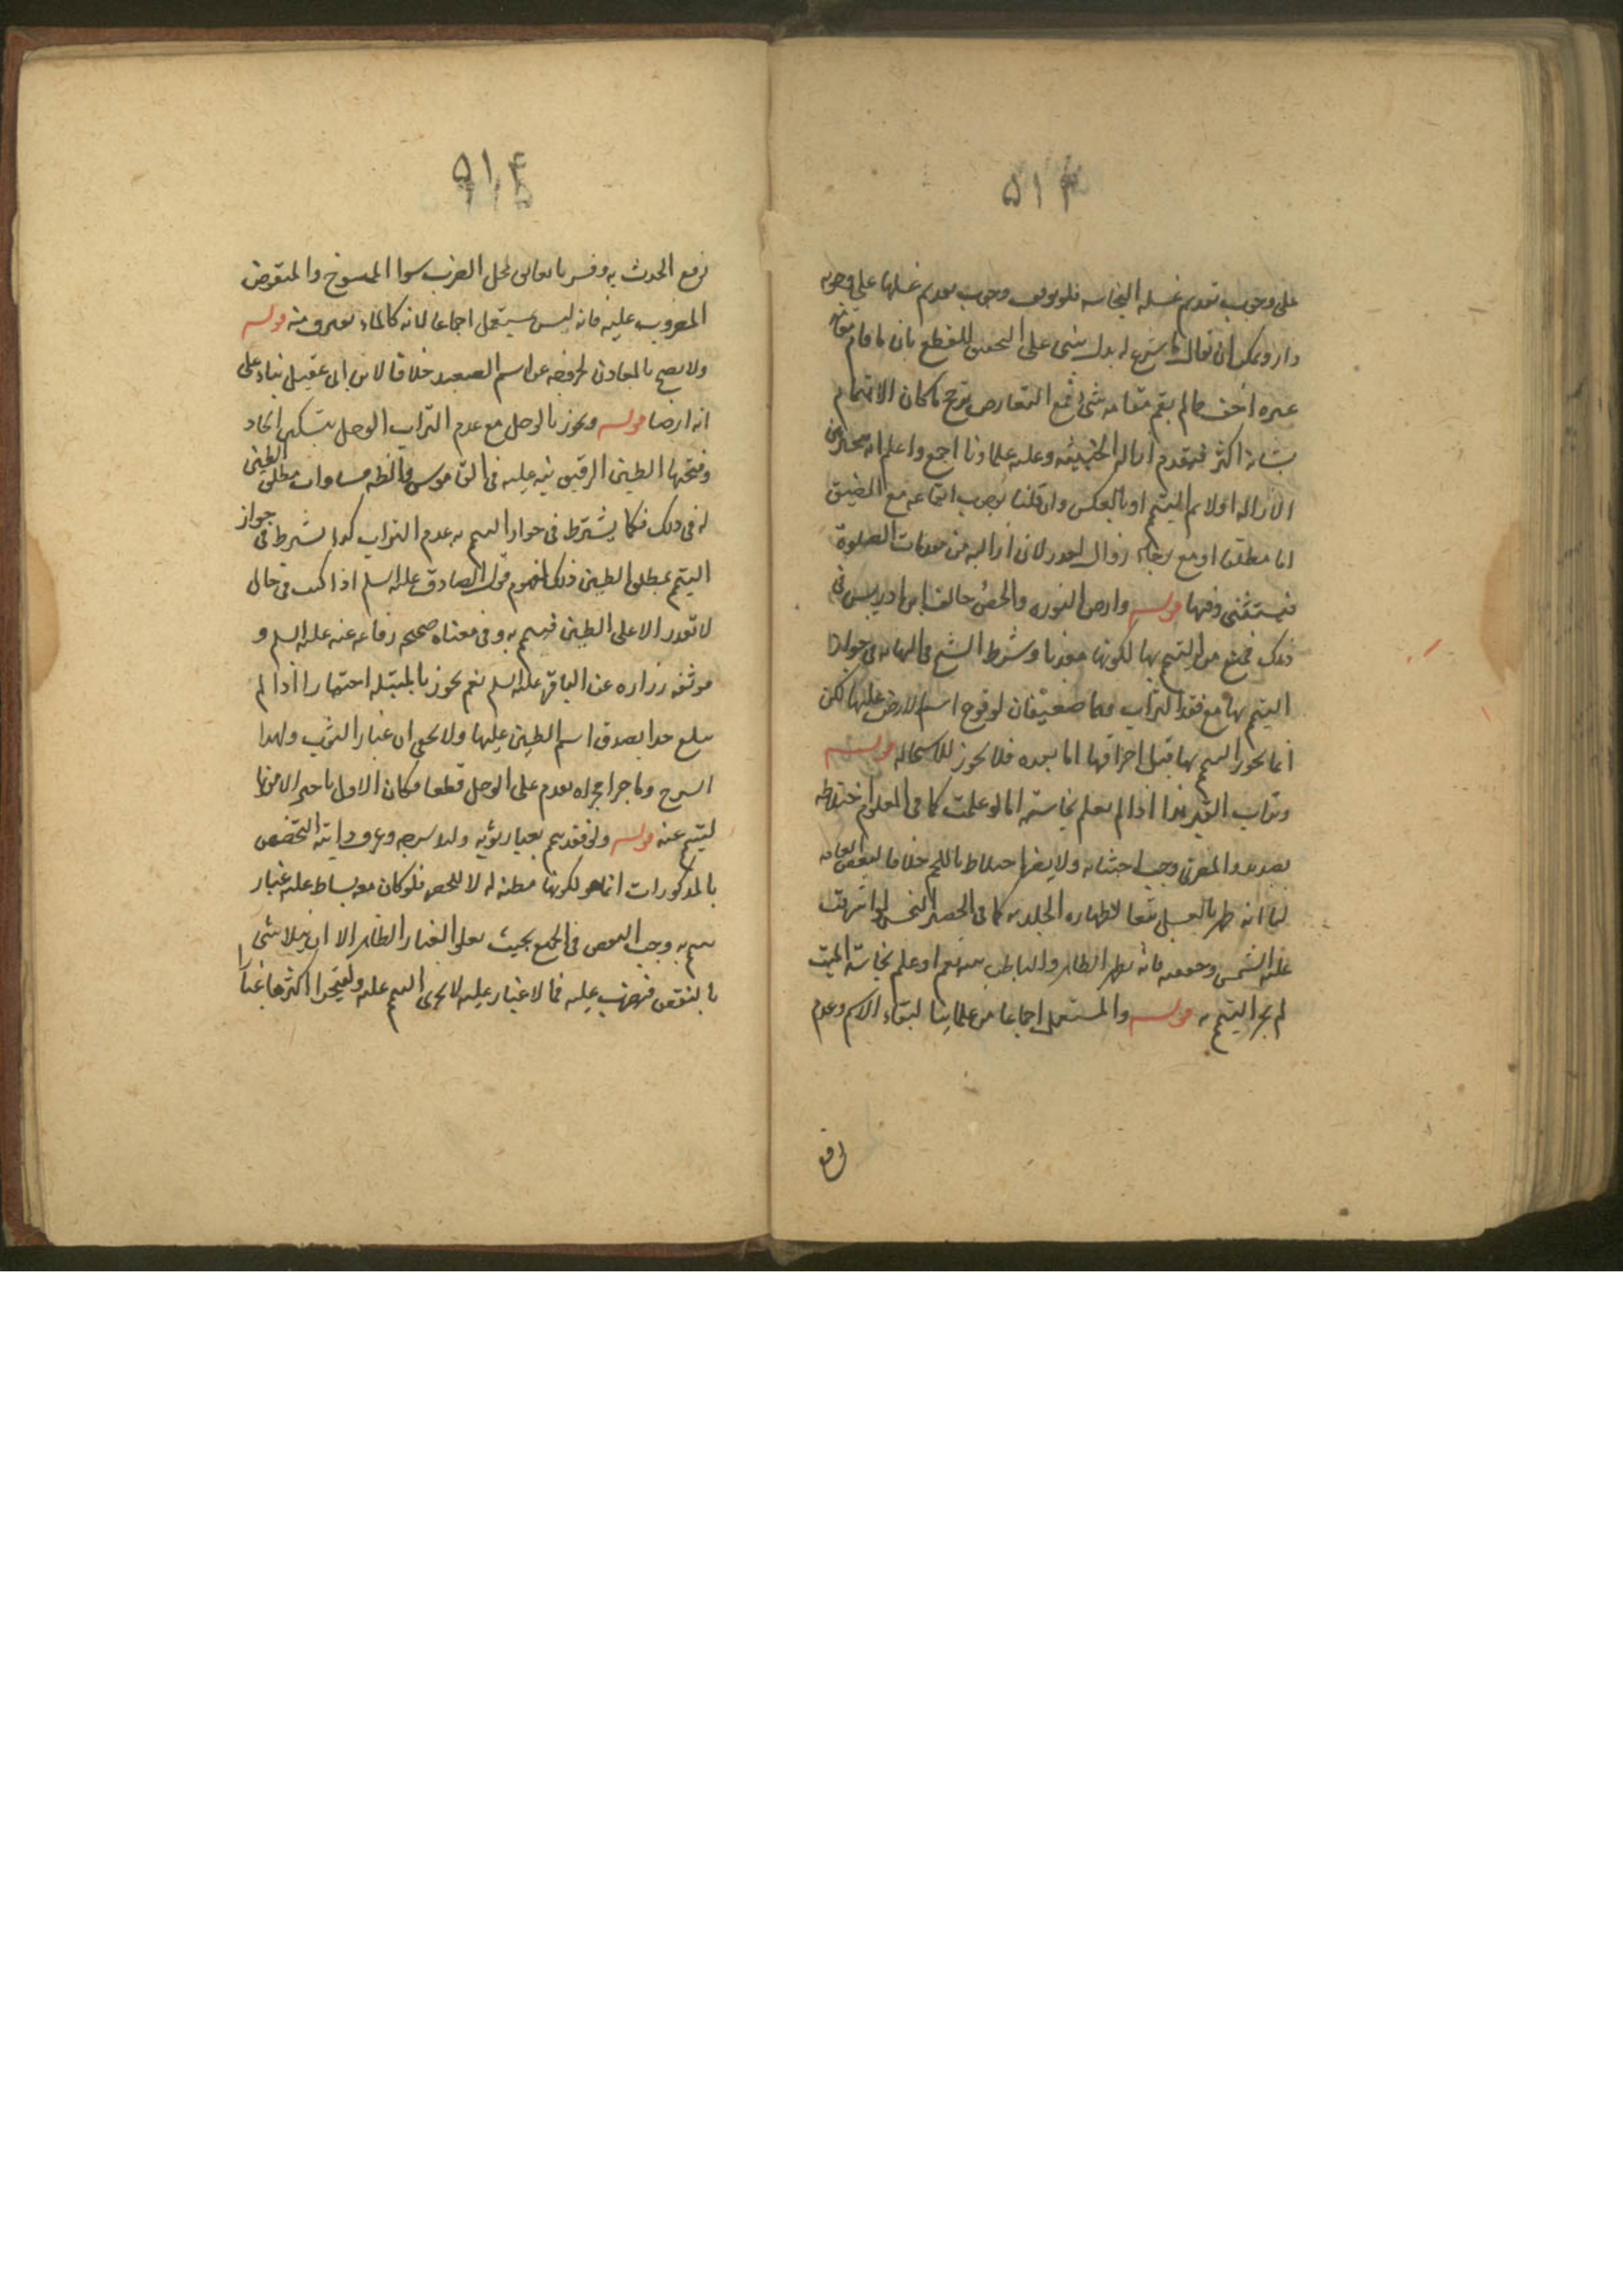 ۵۱۳
على وجوب تقديم غسله النجاسه فلو توقف وجوب تقديم غسلها على وجوبه
دار ويمكن ان يقال ما شرع له بدل على التحقيق للقطع بان ما قام مقامه
غيره اخف مما لم يقم مقامه شئ فمع التعارض يرجح ما كان الاهتمام
بشانه اكثر فيقدم ازاله الخبيثه وعليه علماونا اجمع واعلم انه مخير بين
الازاله اولا ثم التيمم او بالعكس وان قلنا بوجوب ايقاعه مع الضيق
اما مطلقا او مع رجاء زوال العذر لان ازالته من مقدمات الصلوة
فيستثنى وقتها قوله وارض النوره والجص خالف ابن ادريس في
ذلك فمنع من التيمم بها لكونها معدنا وشرط الشيخ في النهايه في جواز
التيمم بها مع فقد التراب وهما ضعيفان لوقوع اسم الارض عليها لكن
انما يجوز التيمم بها قبل احراقها اما بعده فلا يجوز للاستحاله قوله
وتراب القبر هذا اذا لم يعلم نجاسته اما لو علمت كما في المعلوم اختلاطه
بصديد الموتى وجب اجتنابه ولا يضر اختلاطه باللحم خلافا لبعض العامه
لنا انه طهر بالغسل تبعا لطهاره الجلد به كما في الحصير النجس لو اشرقت
عليه الشمس وجففته فانه يطهر الظاهر والباطن منه نعم لو علم نجاسة الميت
لم يجز التيمم به قوله والمستعمل اجماعا من علمائنا لبقاء الاسم وعدم
رفع
۵۱۴
رفع الحدث به وفسر بالعالق لمحل الضرب سوا الممسوح والمنفوض
المضروب عليه فانه ليس بمستعمل اجماعا لانه كالماء يغترف منه قوله
ولا يصح بالمعادن لخروجه عن اسم الصعيد خلافا لابن ابى عقيل بناء على
انه ارضا قوله ويجوز بالوحل مع عدم التراب الوحل بتسكين الحاء
وفتحها الطين الرقيق نبه عليه في القاموس والظ مساوات مطلق الطين
له في ذلك فكما يشترط في جواز التيمم به عدم التراب كذا يشترط في جواز
التيمم بمطلق الطين ذلك لعموم قول الصادق عليه السلم اذا كنت في حال
لا تقدر الا على الطين فتيمم به وفي معناه صحيحه رفاعه عنه عليه السلم و
موثقه زراره عن الباقر عليه السلم نعم يجوز بالمبتله اختيارا اذا لم
تبلغ حدا يصدق اسم الطين عليها ولا يخفى ان غبار الثوب ولبد
السرج وما جرا مجراه يقدم على الوحل قطعا فكان الاول تاخير الامر بها
ليتيمم عنه قوله ولو فقد تيمم بغبار ثوبه ولبد سرجه وعرف دابته التخصيص
بالمذكورات انما هو لكونها مظنه له لا للحصر فلو كان معه بساط عليه غبار
تيمم به وجب النفض في الجميع بحيث يعلو الغبار الظاهر الا ان يتلاشى
بالنفض فيضرب عليه فما لا غبار عليه لا يجزى التيمم عليه وليتحر اكثرها غبارا